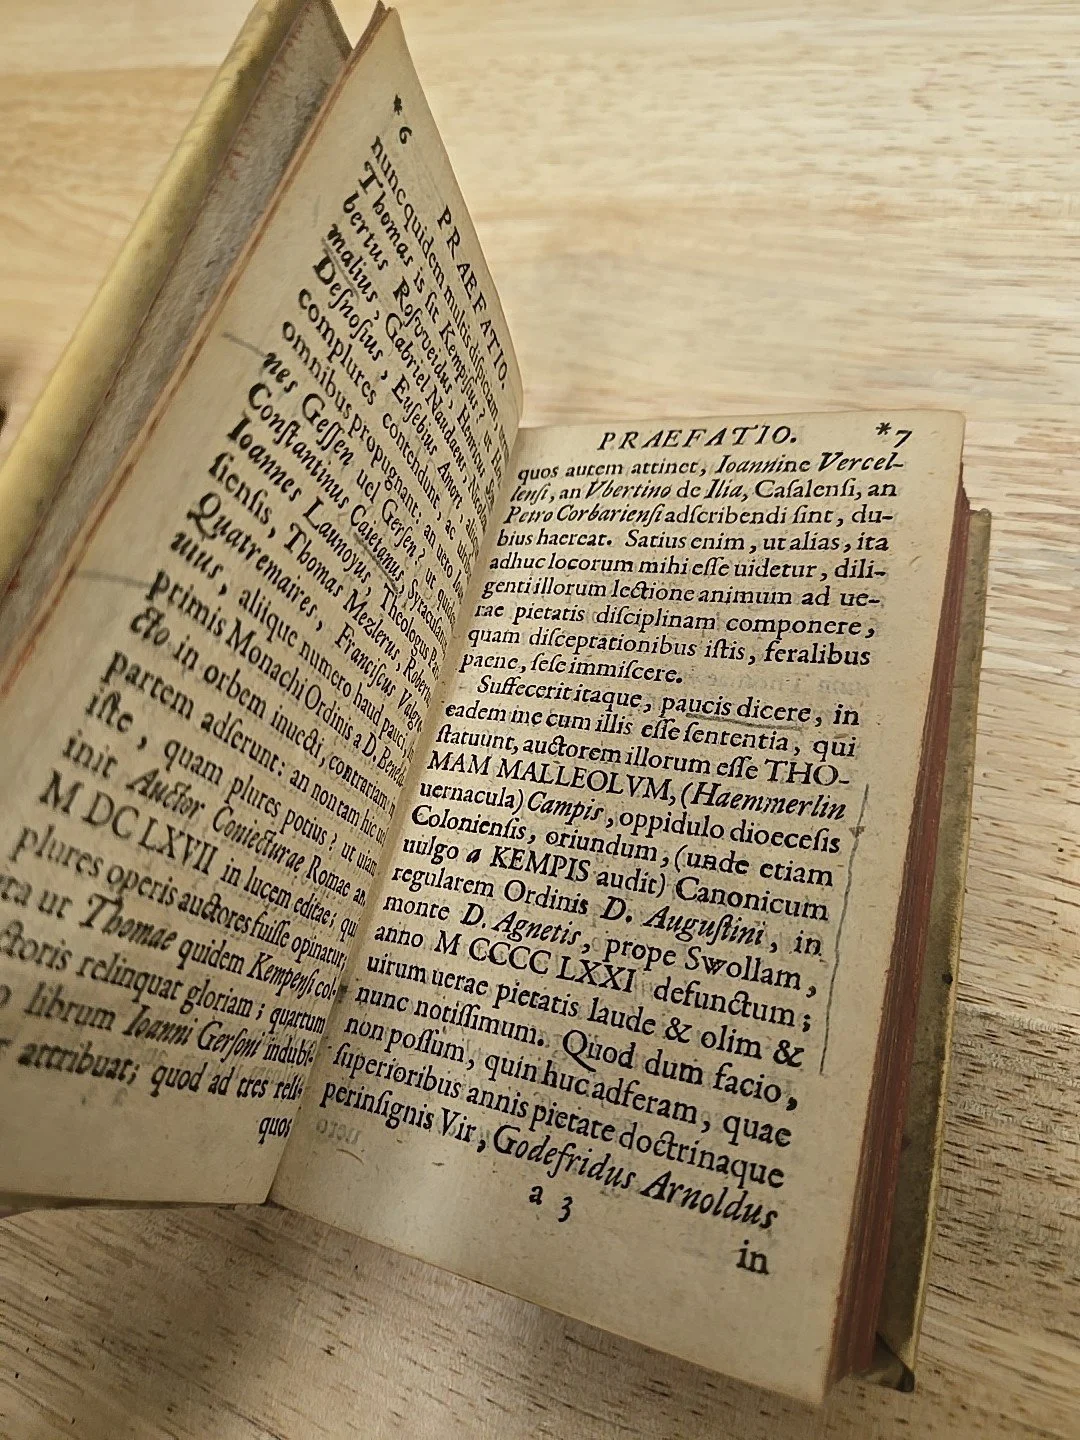 *6
PRAEFATIO.
nunc quidem multis dispiciam,
Thomas is sit Kempisius? ut
bertus Rosvveidus, Henricus
malius, Gabriel Naudaeus,
Desnosius, Eusebius Amort,
complures contendunt, ac
omnibus propugnant: an vero
nes Gessen uel Gersen? ut
Constantinus Caietanus,
Ioannes Launojus, Theologus
siensis, Thomas Mezlerus,
Quatremaires, Franciscus
uius, aliique numero haud pauci,
primis Monachi Ordinis a D.
cto in orbem inuecti, contrariam
partem adserunt: an non tam hic
iste, quam plures potius? ut
init Auctor Coniecturae Romae
M DC LXVII in lucem editae; qui
plures operis auctores fuisse opinatur;
ut Thomae quidem Kempensi
relinquat gloriam; quartum
librum Ioanni Gersoni
attribuat; quod ad tres
quos
PRAEFATIO. *7
quos autem attinet, Ioannine Vercel-
lensi, an Vbertino de Ilia, Casalensi, an
Petro Corbariensi adscribendi sint, du-
bius haereat. Satius enim, ut alias, ita
adhuc locorum mihi esse uidetur, dili-
genti illorum lectione animum ad ue-
rae pietatis disciplinam componere,
quam disceptationibus istis, feralibus
paene, sese immiscere.
Suffecerit itaque, paucis dicere, in
eadem me cum illis esse sententia, qui
statuunt, auctorem illorum esse THO-
MAM MALLEOLVM, (Haemmerlin
uernacula) Campis, oppidulo dioecesis
Coloniensis, oriundum, (unde etiam
uulgo a KEMPIS audit) Canonicum
regularem Ordinis D. Augustini, in
monte D. Agnetis, prope Swollam,
anno M CCCC LXXI defunctum;
uirum uerae pietatis laude & olim &
nunc notissimum. Quod dum facio,
non possum, quin huc adferam, quae
superioribus annis pietate doctrinaque
perinsignis Vir, Godefridus Arnoldus
a 3
in